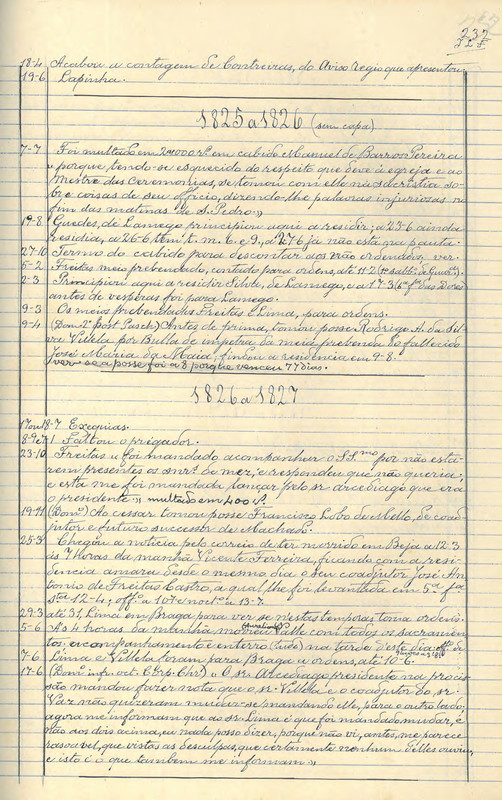 237
18-4 Acabou a contagem de Contreiras, do Aviso regio que apresentou
19-6 Lapinha.
1825 a 1826 (sem capa)
7-7 Foi multado em 2400 rs. em cabido Manuel de Barros Pereira
"porque, tendo-se esquecido do respeito que deve á egreja e ao
Mestre das Ceremonias, se tomou com elle na sacristia so-
bre coisas de seu officio, dizendo-lhe palavras injuriosas no
fim das matinas de S. Pedro."
19-8 Guedes, de Lamego principiou aqui a residir; a 25-6 ainda
residia, a 26-6 tem t. m. b. e 9, a 27-6 já não está na pauta.
27-10 Termo do cabido para descontar aos vão ordenados, ver.
5-2 Freitas meio prebendado, contado para ordens, até 11-2
2-3 Principiou aqui a residir Silva, de Lamego, e a 17-3 (6ª fª das Dores)
antes de vesperas foi para Lamego.
9-3 Os meios prebendados Freitas e Lima, para ordens.
9-4 (Domº 2º post Pasch) Antes de prima, tomou posse Rodrigo A. da Sil-
va Villela por Bulla de impetra da meia prebenda do fallecido
José Maria da Maia; findou a residencia em 9-8.
ver-se a posse foi a 8 porque venceu 77 dias.
1826 a 1827
17 ou 18-7 Exequias.
8-9 e 1 Faltou o prégador.
23-10 Freitas "foi mandado acompanhar o SS.mo por não esta-
rem presentes os snrs. de mez, e respondeu que não queria;
e esta me foi mandada lançar pelo sr. arcediago que era
o presidente," multado em 400 rs.
19-11 (Domº) Ao cessar tomou posse Francisco Lobo de Mello, de coad-
jutor e futuro successor de Machado.
25-3 Chegou a noticia pelo correio de ter morrido em Beja a 12-3
ás 7 horas da manhã Vicente Ferreira, ficando com a resi-
dencia amara desde o mesmo dia o seu coadjutor José An-
tonio de Freitas Castro, a qual lhe foi levantada em 5ª fª
stª 12-4; offº a 10 e 1 noctº a 13-7.
29-3 até 31, Lima em Braga para ver se nestas temporas toma ordens.
5-6 As 4 horas da manhã morreu Valle com todos os sacramen-
tos; encompanhamento e enterro (tudo) na tarde deste dia off. de
7-6 Lima e Villela foram para Braga a ordens, até 10-6.
17-6 (Domº infr. oct. Corp. Chrº) "O Sr. Arcediago presidente na procis-
são mandou fazer nota que o sr. Villela e o coadjutor do sr.
Vaz não quizeram mudar-se mandando elle, para o outro lado;
agora me informam que ao sr. Lima é que foi mandado mudar, e
não aos dois acima, eu nada posso dizer, porque não vi, antes, me parece
rasoavel, que vistas as desculpas, que certamente nenhum delles ouviu,
e isto é o que tambem me informam."